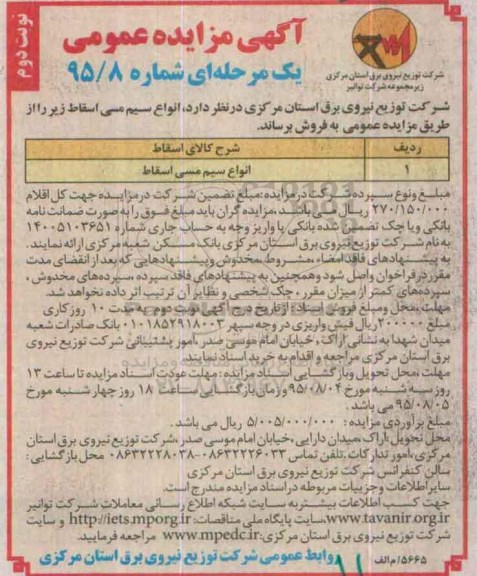 نوبت دوم
آگهی مزایده عمومی
یک مرحله‌ای شماره ۹۵/۸
شرکت توزیع نیروی برق استان مرکزی
زیرمجموعه شرکت توانیر
شرکت توزیع نیروی برق استان مرکزی درنظر دارد، انواع سیم مسی اسقاط زیر را از
طریق مزایده عمومی به فروش برساند.
ردیف شرح کالای اسقاط
۱ انواع سیم مسی اسقاط
مبلغ ونوع سپرده شرکت در مزایده: مبلغ تضمین شرکت درمزایده جهت کل اقلام
۲۷۰/۱۵۰/۰۰۰ ریال می باشد. مزایده گران باید مبلغ فوق را به صورت ضمانت نامه
بانکی ویا چک تضمین شده بانکی یا واریز وجه به حساب جاری شماره ۱۴۰۰۵۱۰۳۶۵۱
به نام شرکت توزیع نیروی برق استان مرکزی بانک مسکن شعبه مرکزی ارائه نمایند.
به پیشنهادهای فاقد امضاء، مشروط، مخدوش وپیشنهادهایی که بعد از انقضای مدت
مقرر درفراخوان واصل شود وهمچنین به پیشنهادهای فاقد سپرده، سپرده‌های مخدوش،
سپرده‌های کمتر از میزان مقرر، چک شخصی و نظایر آن ترتیب اثر داده نخواهد شد.
مهلت، محل ومبلغ فروش اسناد: از تاریخ درج آگهی نوبت دوم به مدت ۱۰ روز کاری
مبلغ ۲۰۰۰۰۰ ریال فیش واریزی در وجه سپهر ۰۱۰۱۸۵۲۹۱۸۰۰۳ بانک صادرات شعبه
میدان شهدا به نشانی: اراک، خیابان امام موسی صدر، امور پشتیبانی شرکت توزیع نیروی
برق استان مرکزی مراجعه و اقدام به خرید اسناد نمایند.
مهلت، محل تحویل وبازگشایی اسناد مزایده: مهلت عودت اسناد مزایده تا ساعت ۱۳
روز سه شنبه مورخ ۹۵/۰۸/۰۴ وزمان بازگشایی ساعت ۱۸ روز چهار شنبه مورخ
۹۵/۰۸/۰۵ می باشد.
مبلغ برآوردی مزایده: ۵/۰۰۵/۰۰۰/۰۰۰ ریال می باشد.
محل تحویل: اراک، میدان دارایی، خیابان امام موسی صدر، شرکت توزیع نیروی برق استان
مرکزی، امور تدارکات. تلفن تماس ۰۸۶۳۲۲۲۶۰۳۳-۰۸۶۳۲۲۲۸۰۳۸ محل بازگشایی:
سالن کنفرانس شرکت توزیع نیروی برق استان مرکزی
سایر اطلاعات وجزییات مربوطه در اسناد مزایده مندرج است.
جهت کسب اطلاعات بیشتر به سایت شبکه اطلاع رسانی معاملات شرکت توانیر
www.tavanir.org.ir، سایت پایگاه ملی مناقصات: http://iets.mporg.ir و سایت
شرکت توزیع نیروی برق استان مرکزی: www.mpedc.ir مراجعه فرمایید.
۵۶۶۵/م الف
روابط عمومی شرکت توزیع نیروی برق استان مرکزی